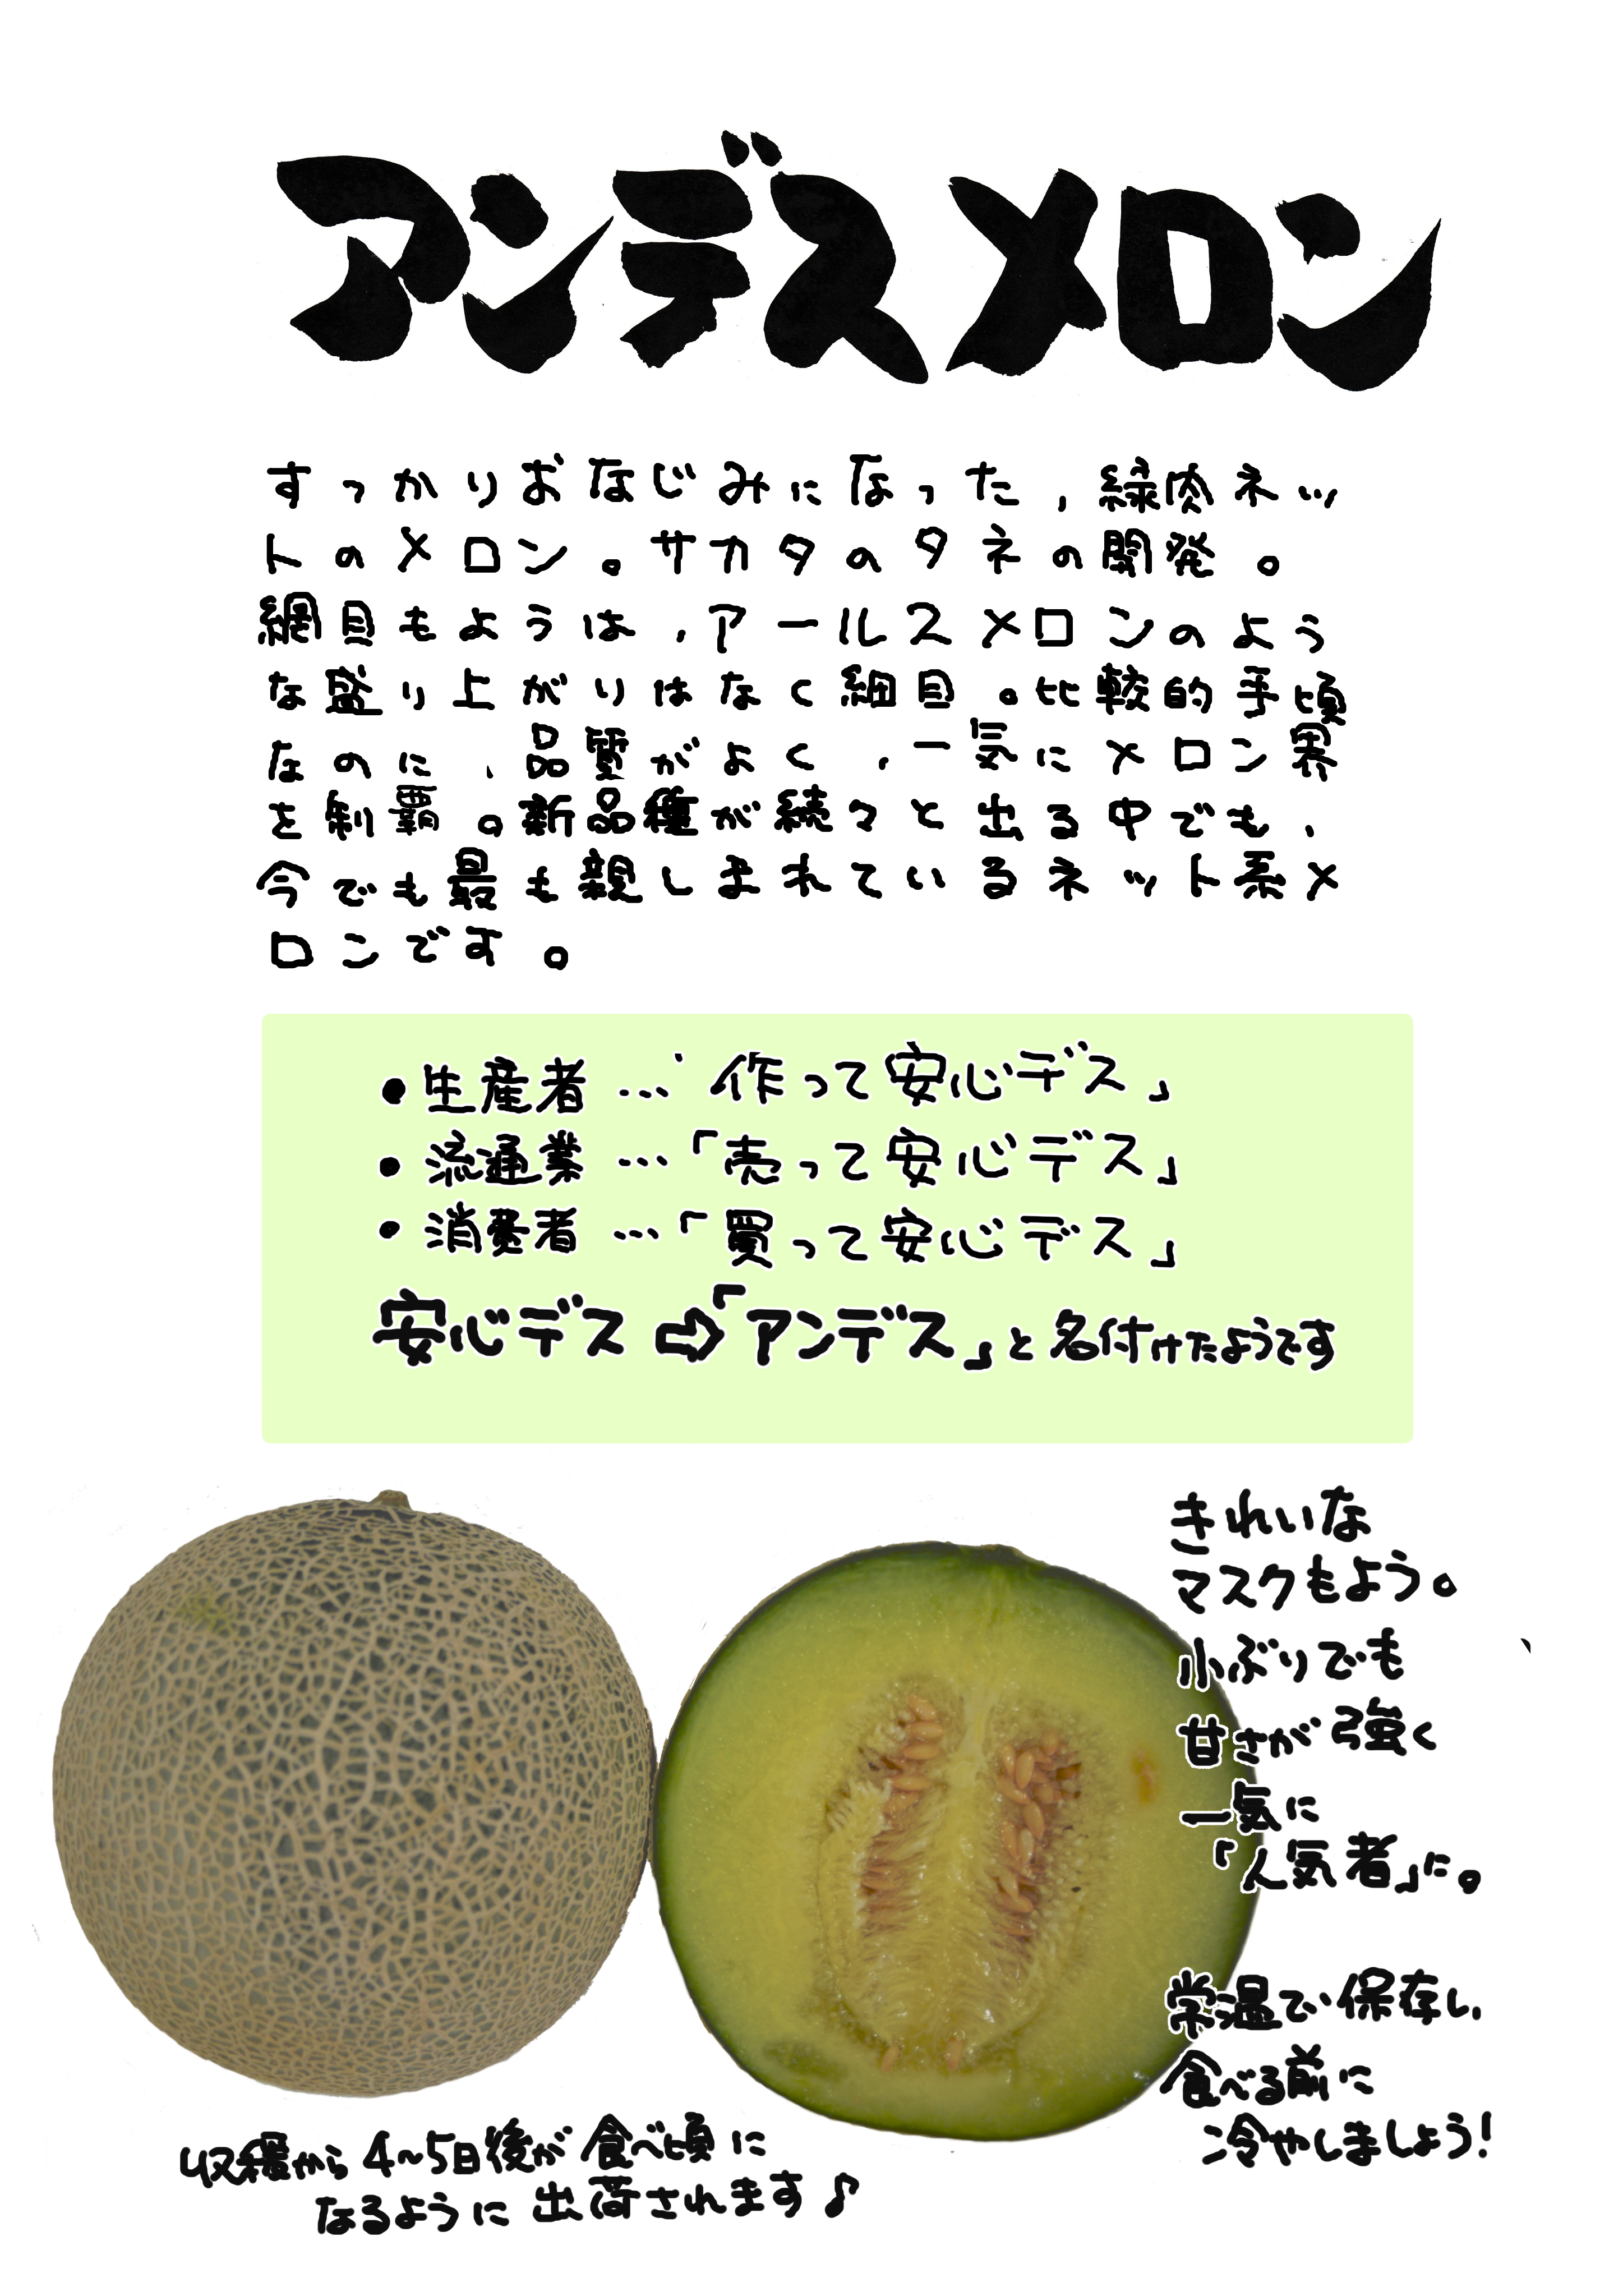 アンデスメロン
すっかりおなじみになった、緑肉ネッ
トのメロン。サカタのタネの開発。
網目もようは、アールスメロンのよう
な盛り上がりはなく細目。比較的手頃
なのに、品質がよく、一気にメロン界
を制覇。新品種が続々と出る中でも、
今でも最も親しまれているネット系メ
ロンです。
●生産者…「作って安心デス」
●流通業…「売って安心デス」
●消費者…「買って安心デス」
安心デス⇨「アンデス」と名付けたようです
きれいな
マスクもよう。
小ぶりでも
甘さが強く
一気に
「人気者」に。
常温で保存し、
食べる前に
冷やしましょう!
収穫から4~5日後が食べ頃に
なるように出荷されます♪